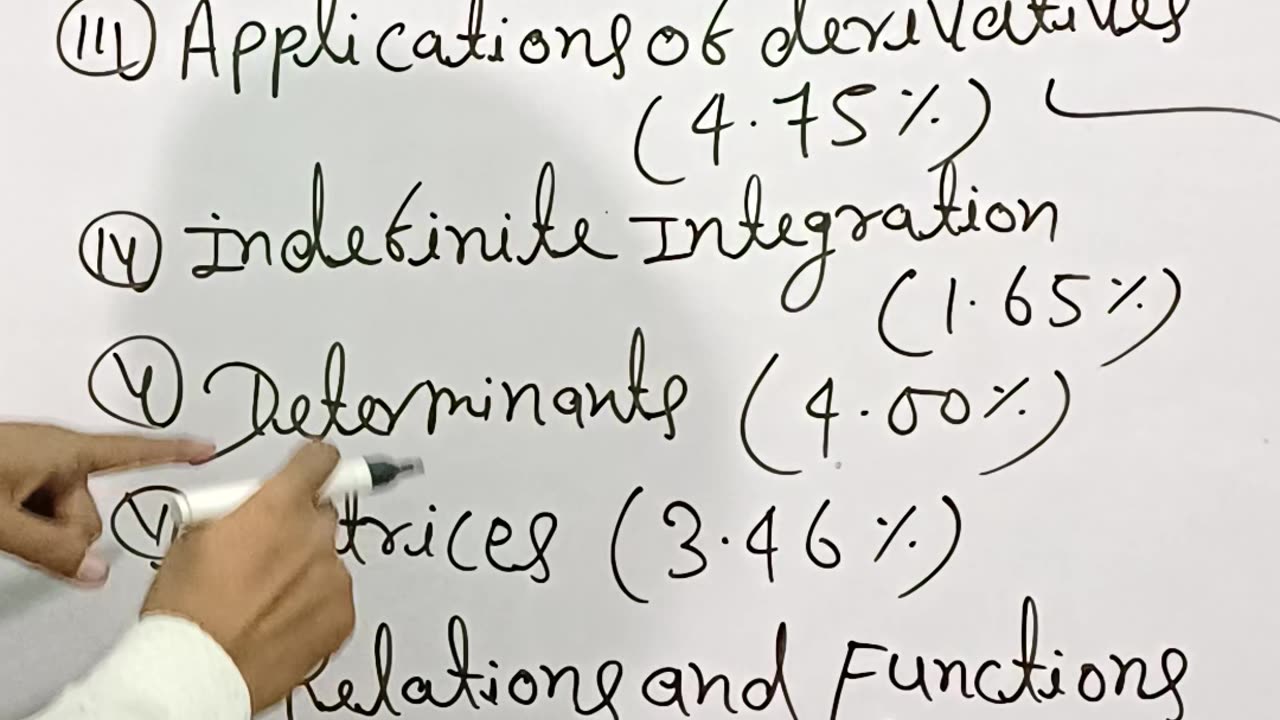 (III) Applications of derivatives
(4.75%)
(IV) Indefinite Integration
(1.65%)
(V) Determinants (4.00%)
trices (3.46%)
Relations and Functions